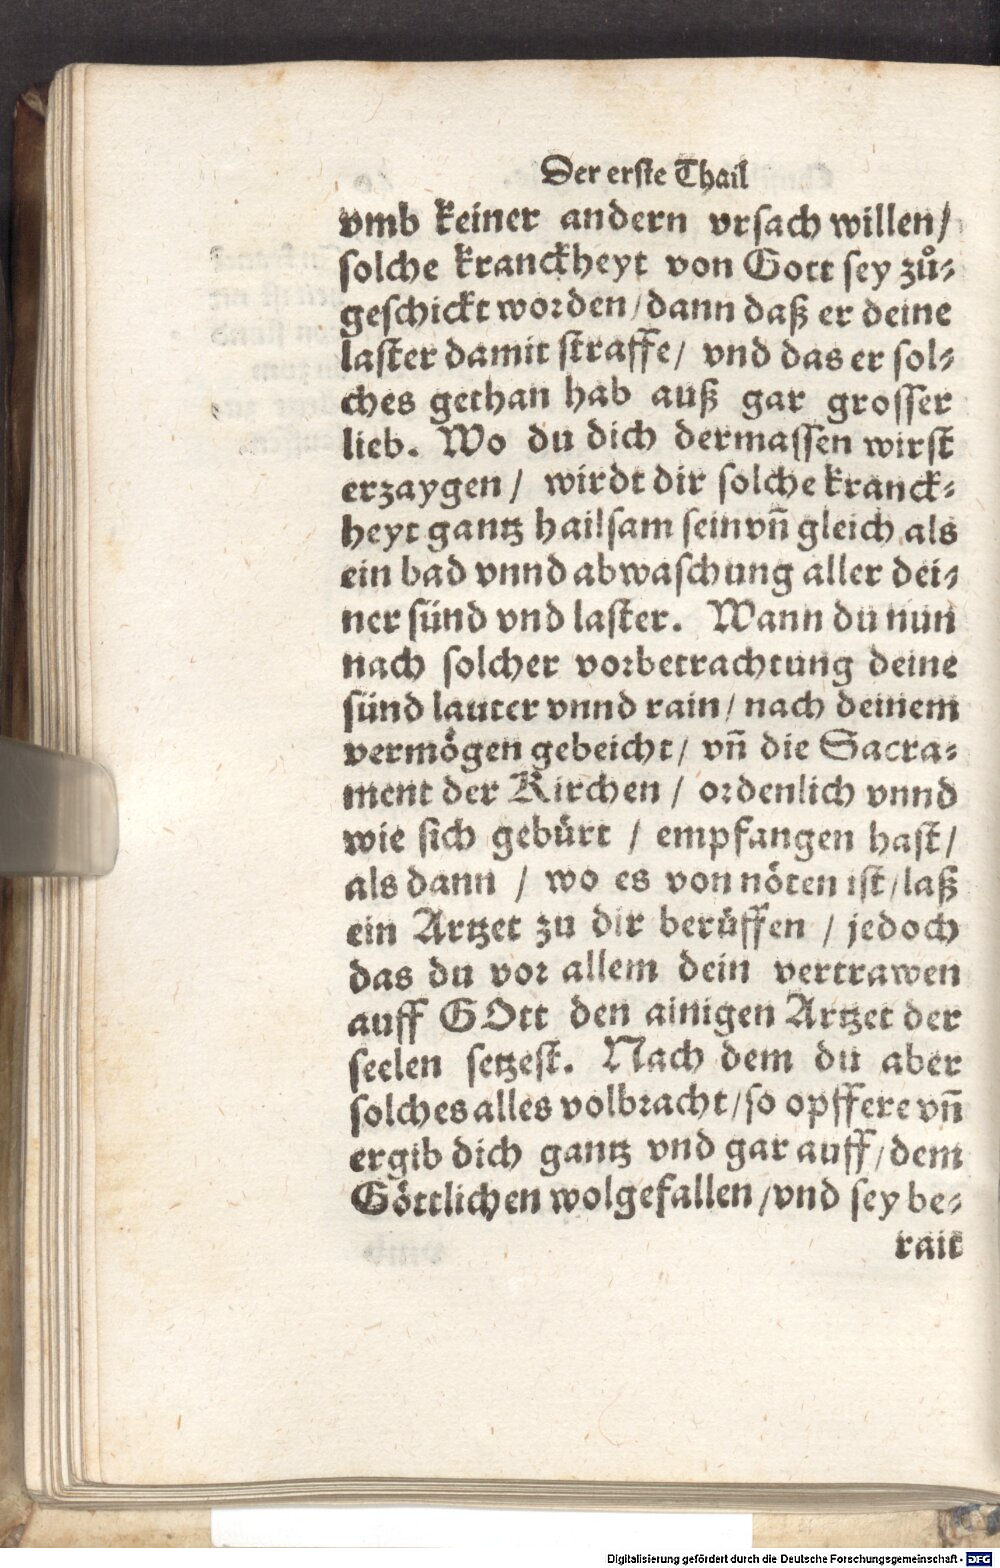 Der erste Thail
vmb keiner andern vrsach willen/
solche kranckheyt von Gott sey zuͦ-
geschickt worden/dann daß er deine
laster damit straffe/ vnd das er sol-
ches gethan hab auß gar grosser
lieb. Wo du dich dermassen wirst
erzaygen/ wirdt dir solche kranck-
heyt gantz hailsam sein vñ gleich als
ein bad vnnd abwaschung aller dei-
ner sünd vnd laster. Wann du nun
nach solcher vorbetrachtung deine
sünd lauter vnnd rain/ nach deinem
vermögen gebeicht/ vñ die Sacra-
ment der Kirchen/ ordenlich vnnd
wie sich gebürt / empfangen hast/
als dann / wo es von nöten ist/laß
ein Artzet zu dir berüffen / jedoch
das du vor allem dein vertrawen
auff GOtt den ainigen Artzet der
seelen setzest. Nach dem du aber
solches alles volbracht/so opffere vñ
ergib dich gantz vnd gar auff/dem
Göttlichen wolgefallen/vnd sey be-
rait
Digitalisierung gefördert durch die Deutsche Forschungsgemeinschaft - DFG